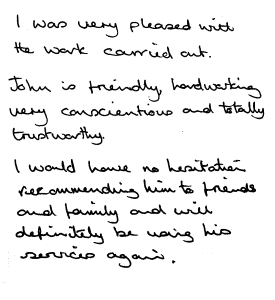 I was very pleased with
the work carried out.
John is friendly, hardworking
very conscientious and totally
trustworthy.
I would have no hesitation
recommending him to friends
and family and will
definitely be using his
services again.